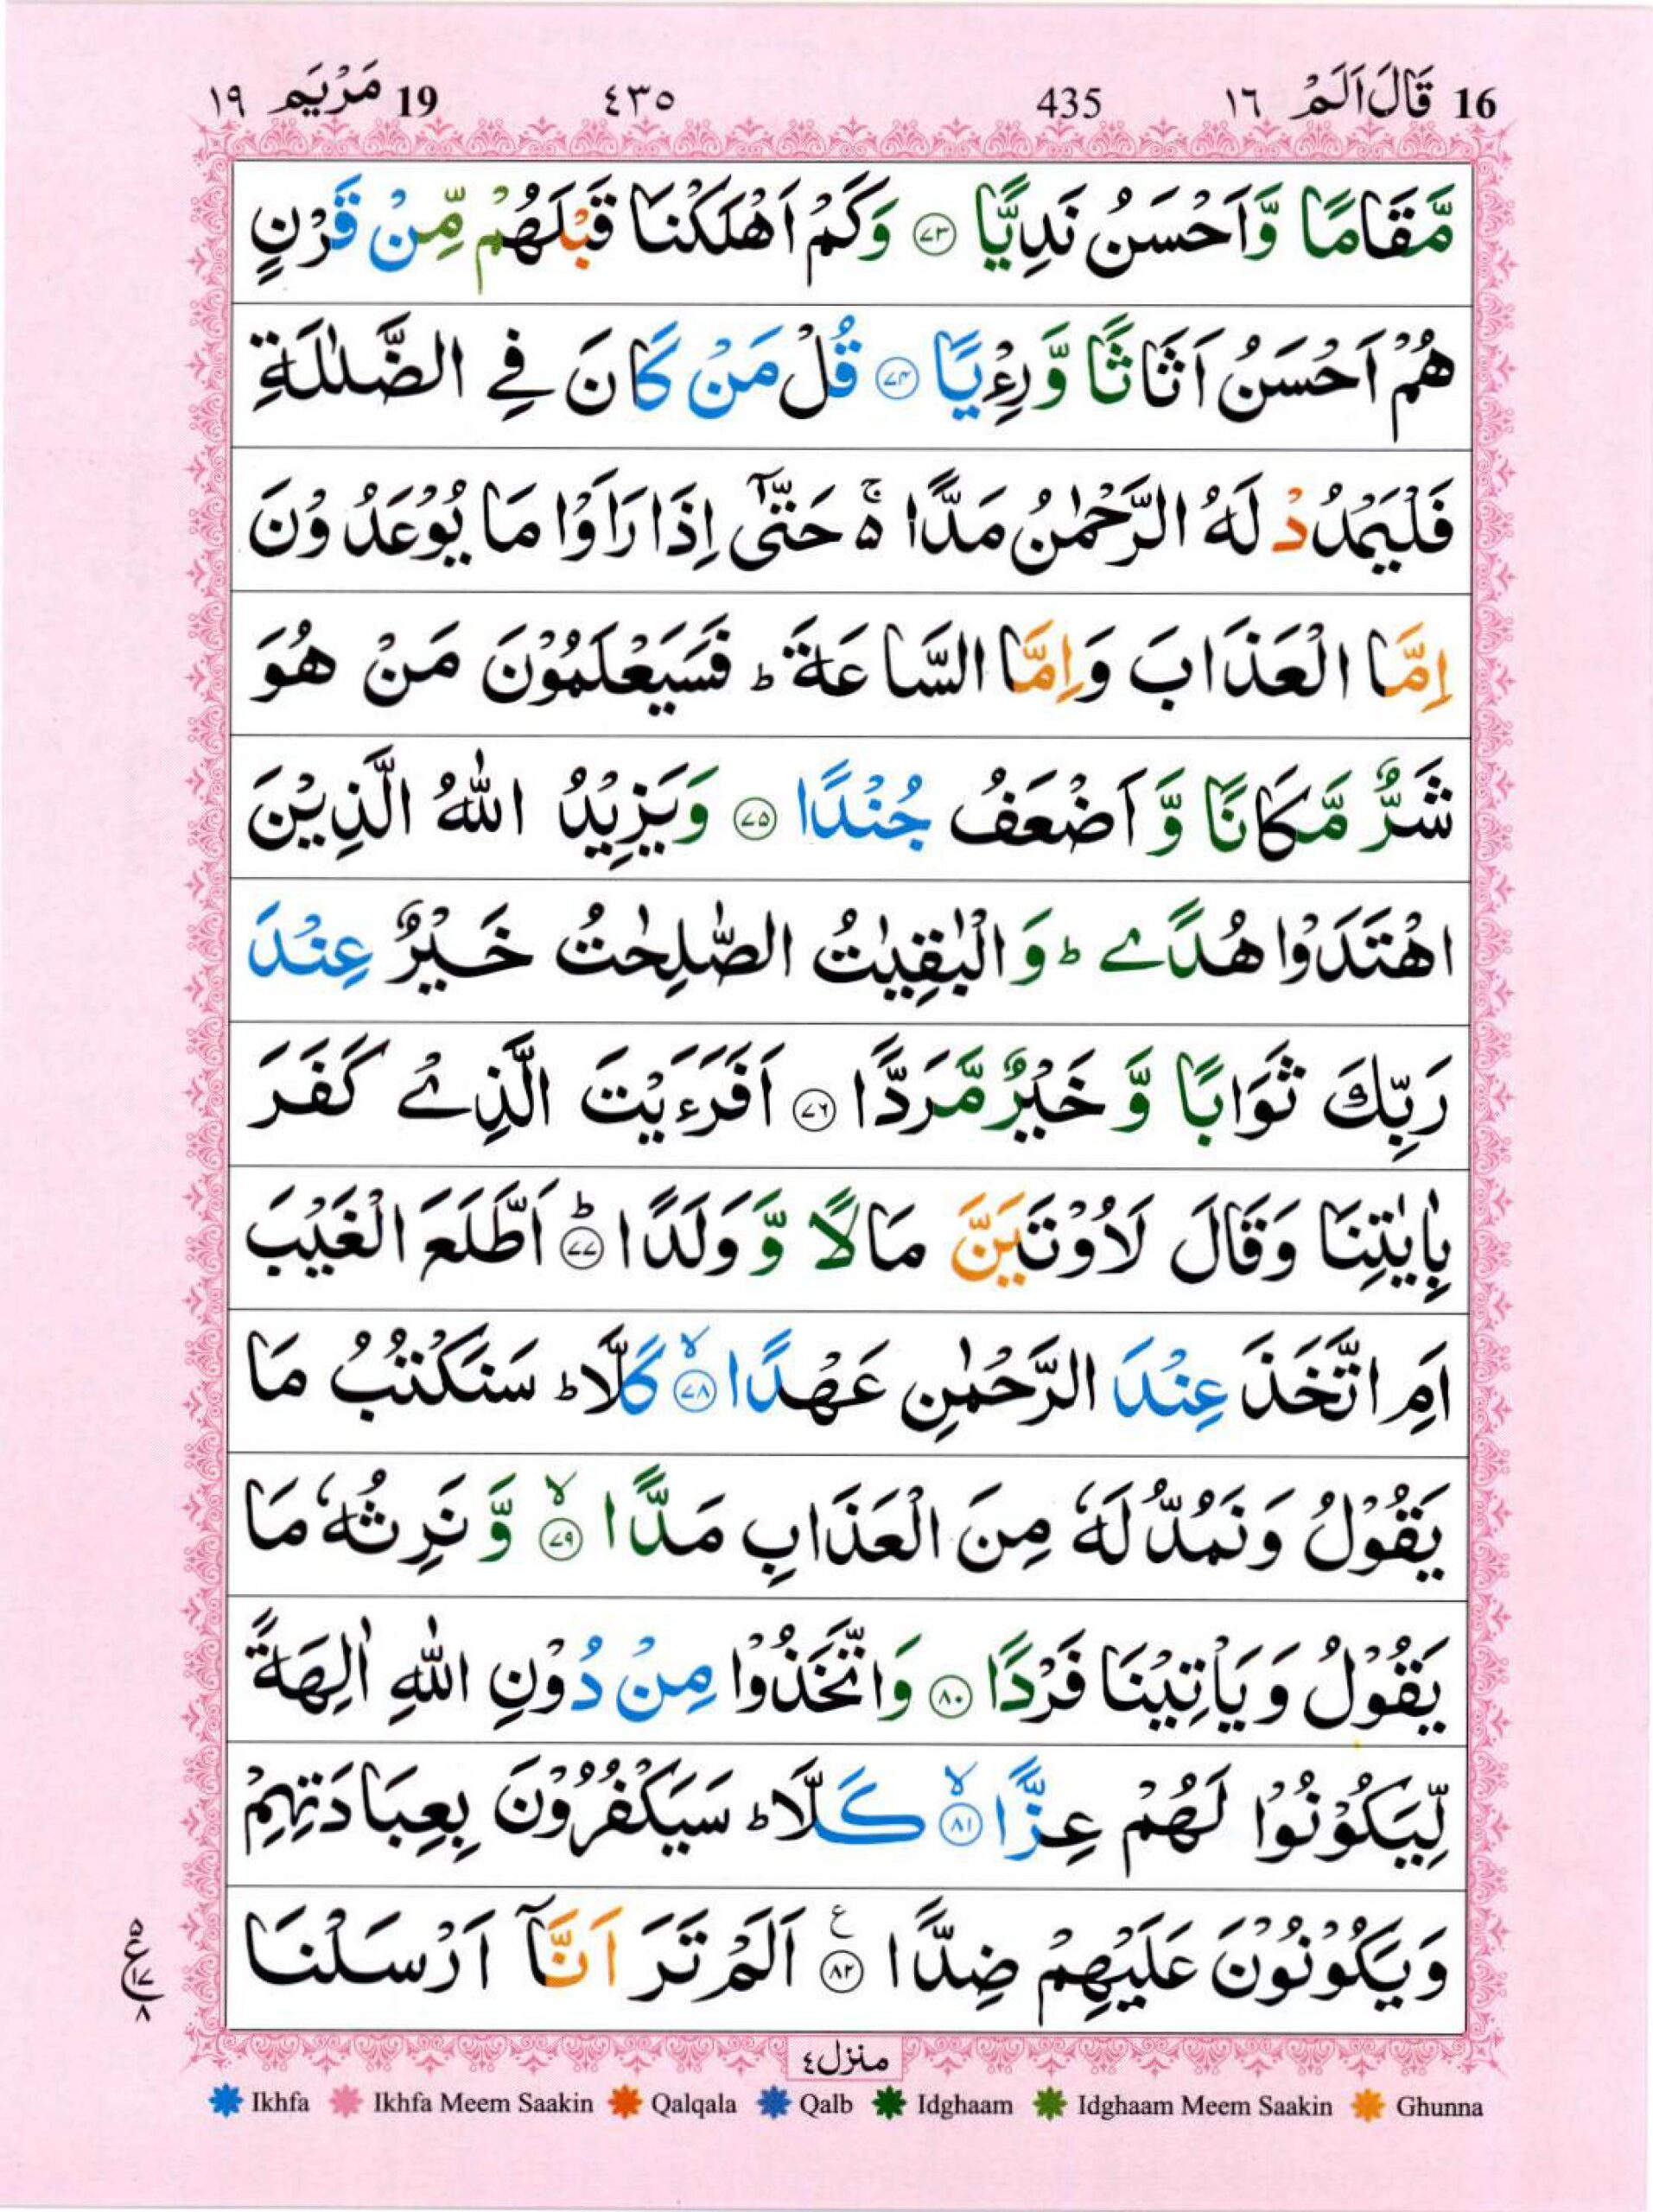 16 قَالَ اَلَمْ ١٦ 435 ٤٣٥ 19 مَرْيَم ١٩
مَّقَامًا وَّاَحْسَنُ نَدِيًّا ﴿۷۳﴾ وَكَمْ اَهْلَكْنَا قَبْلَهُمْ مِّنْ قَرْنٍ
هُمْ اَحْسَنُ اَثَاثًا وَّرِءْيًا ﴿۷۴﴾ قُلْ مَنْ كَانَ فِي الضَّلٰلَةِ
فَلْيَمْدُدْ لَهُ الرَّحْمٰنُ مَدًّا ۚ۬ حَتّٰۤى اِذَا رَاَوْا مَا يُوْعَدُوْنَ
اِمَّا الْعَذَابَ وَاِمَّا السَّاعَةَ ؕ فَسَيَعْلَمُوْنَ مَنْ هُوَ
شَرٌّ مَّكَانًا وَّاَضْعَفُ جُنْدًا ﴿۷۵﴾ وَيَزِيْدُ اللّٰهُ الَّذِيْنَ
اهْتَدَوْا هُدًے ؕ وَالْبٰقِيٰتُ الصّٰلِحٰتُ خَيْرٌ عِنْدَ
رَبِّكَ ثَوَابًا وَّخَيْرٌ مَّرَدًّا ﴿۷۶﴾ اَفَرَءَيْتَ الَّذِےْ كَفَرَ
بِاٰيٰتِنَا وَقَالَ لَاُوْتَيَنَّ مَالًا وَّوَلَدًا ﴿۷۷﴾ؕ اَطَّلَعَ الْغَيْبَ
اَمِ اتَّخَذَ عِنْدَ الرَّحْمٰنِ عَهْدًا ﴿۷۸﴾ۙ كَلَّا ؕ سَنَكْتُبُ مَا
يَقُوْلُ وَنَمُدُّ لَهٗ مِنَ الْعَذَابِ مَدًّا ﴿۷۹﴾ۙ وَّنَرِثُهٗ مَا
يَقُوْلُ وَيَاْتِيْنَا فَرْدًا ﴿۸۰﴾ وَاتَّخَذُوْا مِنْ دُوْنِ اللّٰهِ اٰلِهَةً
لِّيَكُوْنُوْا لَهُمْ عِزًّا ﴿۸۱﴾ۙ كَلَّا ؕ سَيَكْفُرُوْنَ بِعِبَادَتِهِمْ
وَيَكُوْنُوْنَ عَلَيْهِمْ ضِدًّا ﴿۸۲﴾ع اَلَمْ تَرَ اَنَّاۤ اَرْسَلْنَا
۵ ع ۱۷ ۸
منزل٤
Ikhfa Ikhfa Meem Saakin Qalqala Qalb Idghaam Idghaam Meem Saakin Ghunna